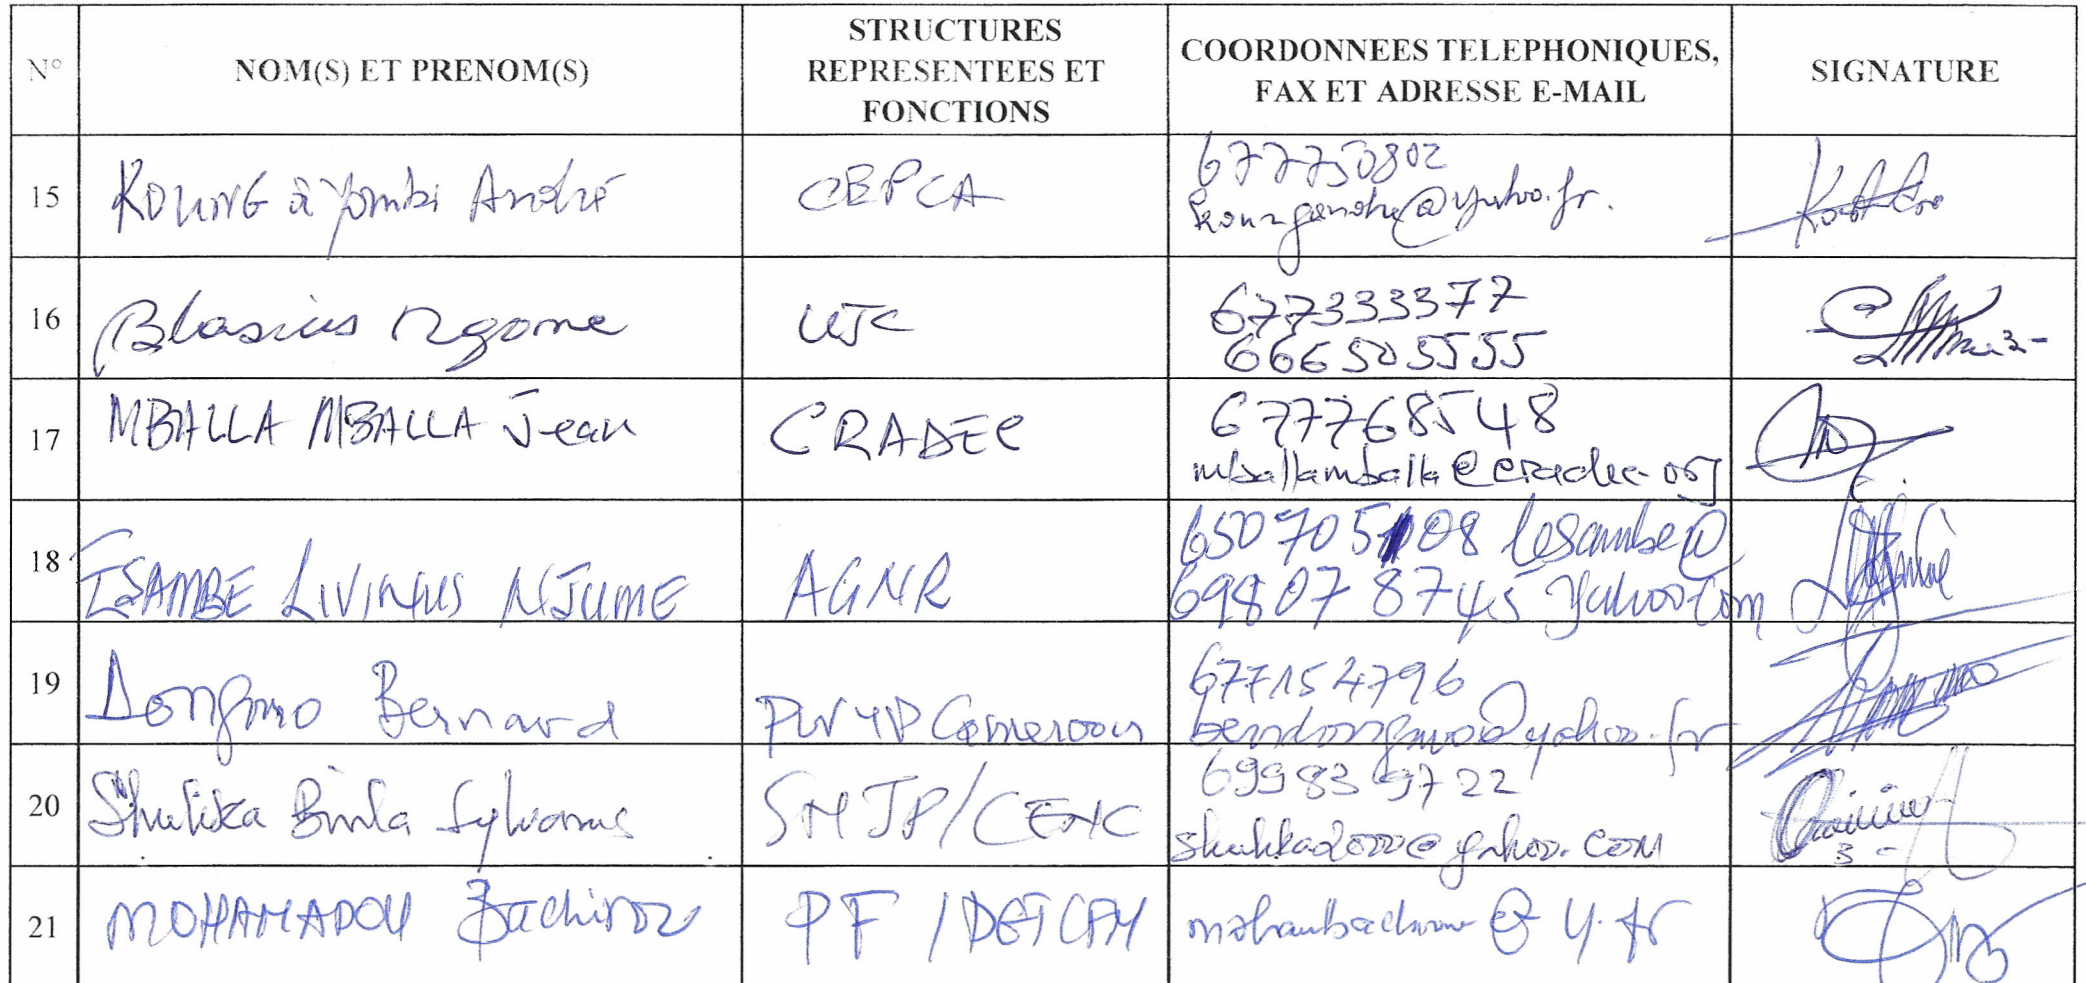 N° NOM(S) ET PRENOM(S) STRUCTURES REPRESENTEES ET FONCTIONS COORDONNEES TELEPHONIQUES, FAX ET ADRESSE E-MAIL SIGNATURE
15 KOUNG à Yombi André CEPCA 677750802
koungandre@yahoo.fr.
16 Blasius Ngome UJC 677333377
666505555
17 MBALLA MBALLA Jean CRADEC 677768548
mballamballa@cradec.org
18 ESAMBE LIVINUS NJUME AGNR 650705108 lesambe@
698078745 yahoo.com
19 Dongmo Bernard PWYP Cameroon 677154796
berndongmo@yahoo.fr
20 Shulika Binla Sylvanus SNJP/CENC 699839722
shulika2000@yahoo.com
21 MOHAMADOU Bachirou PF